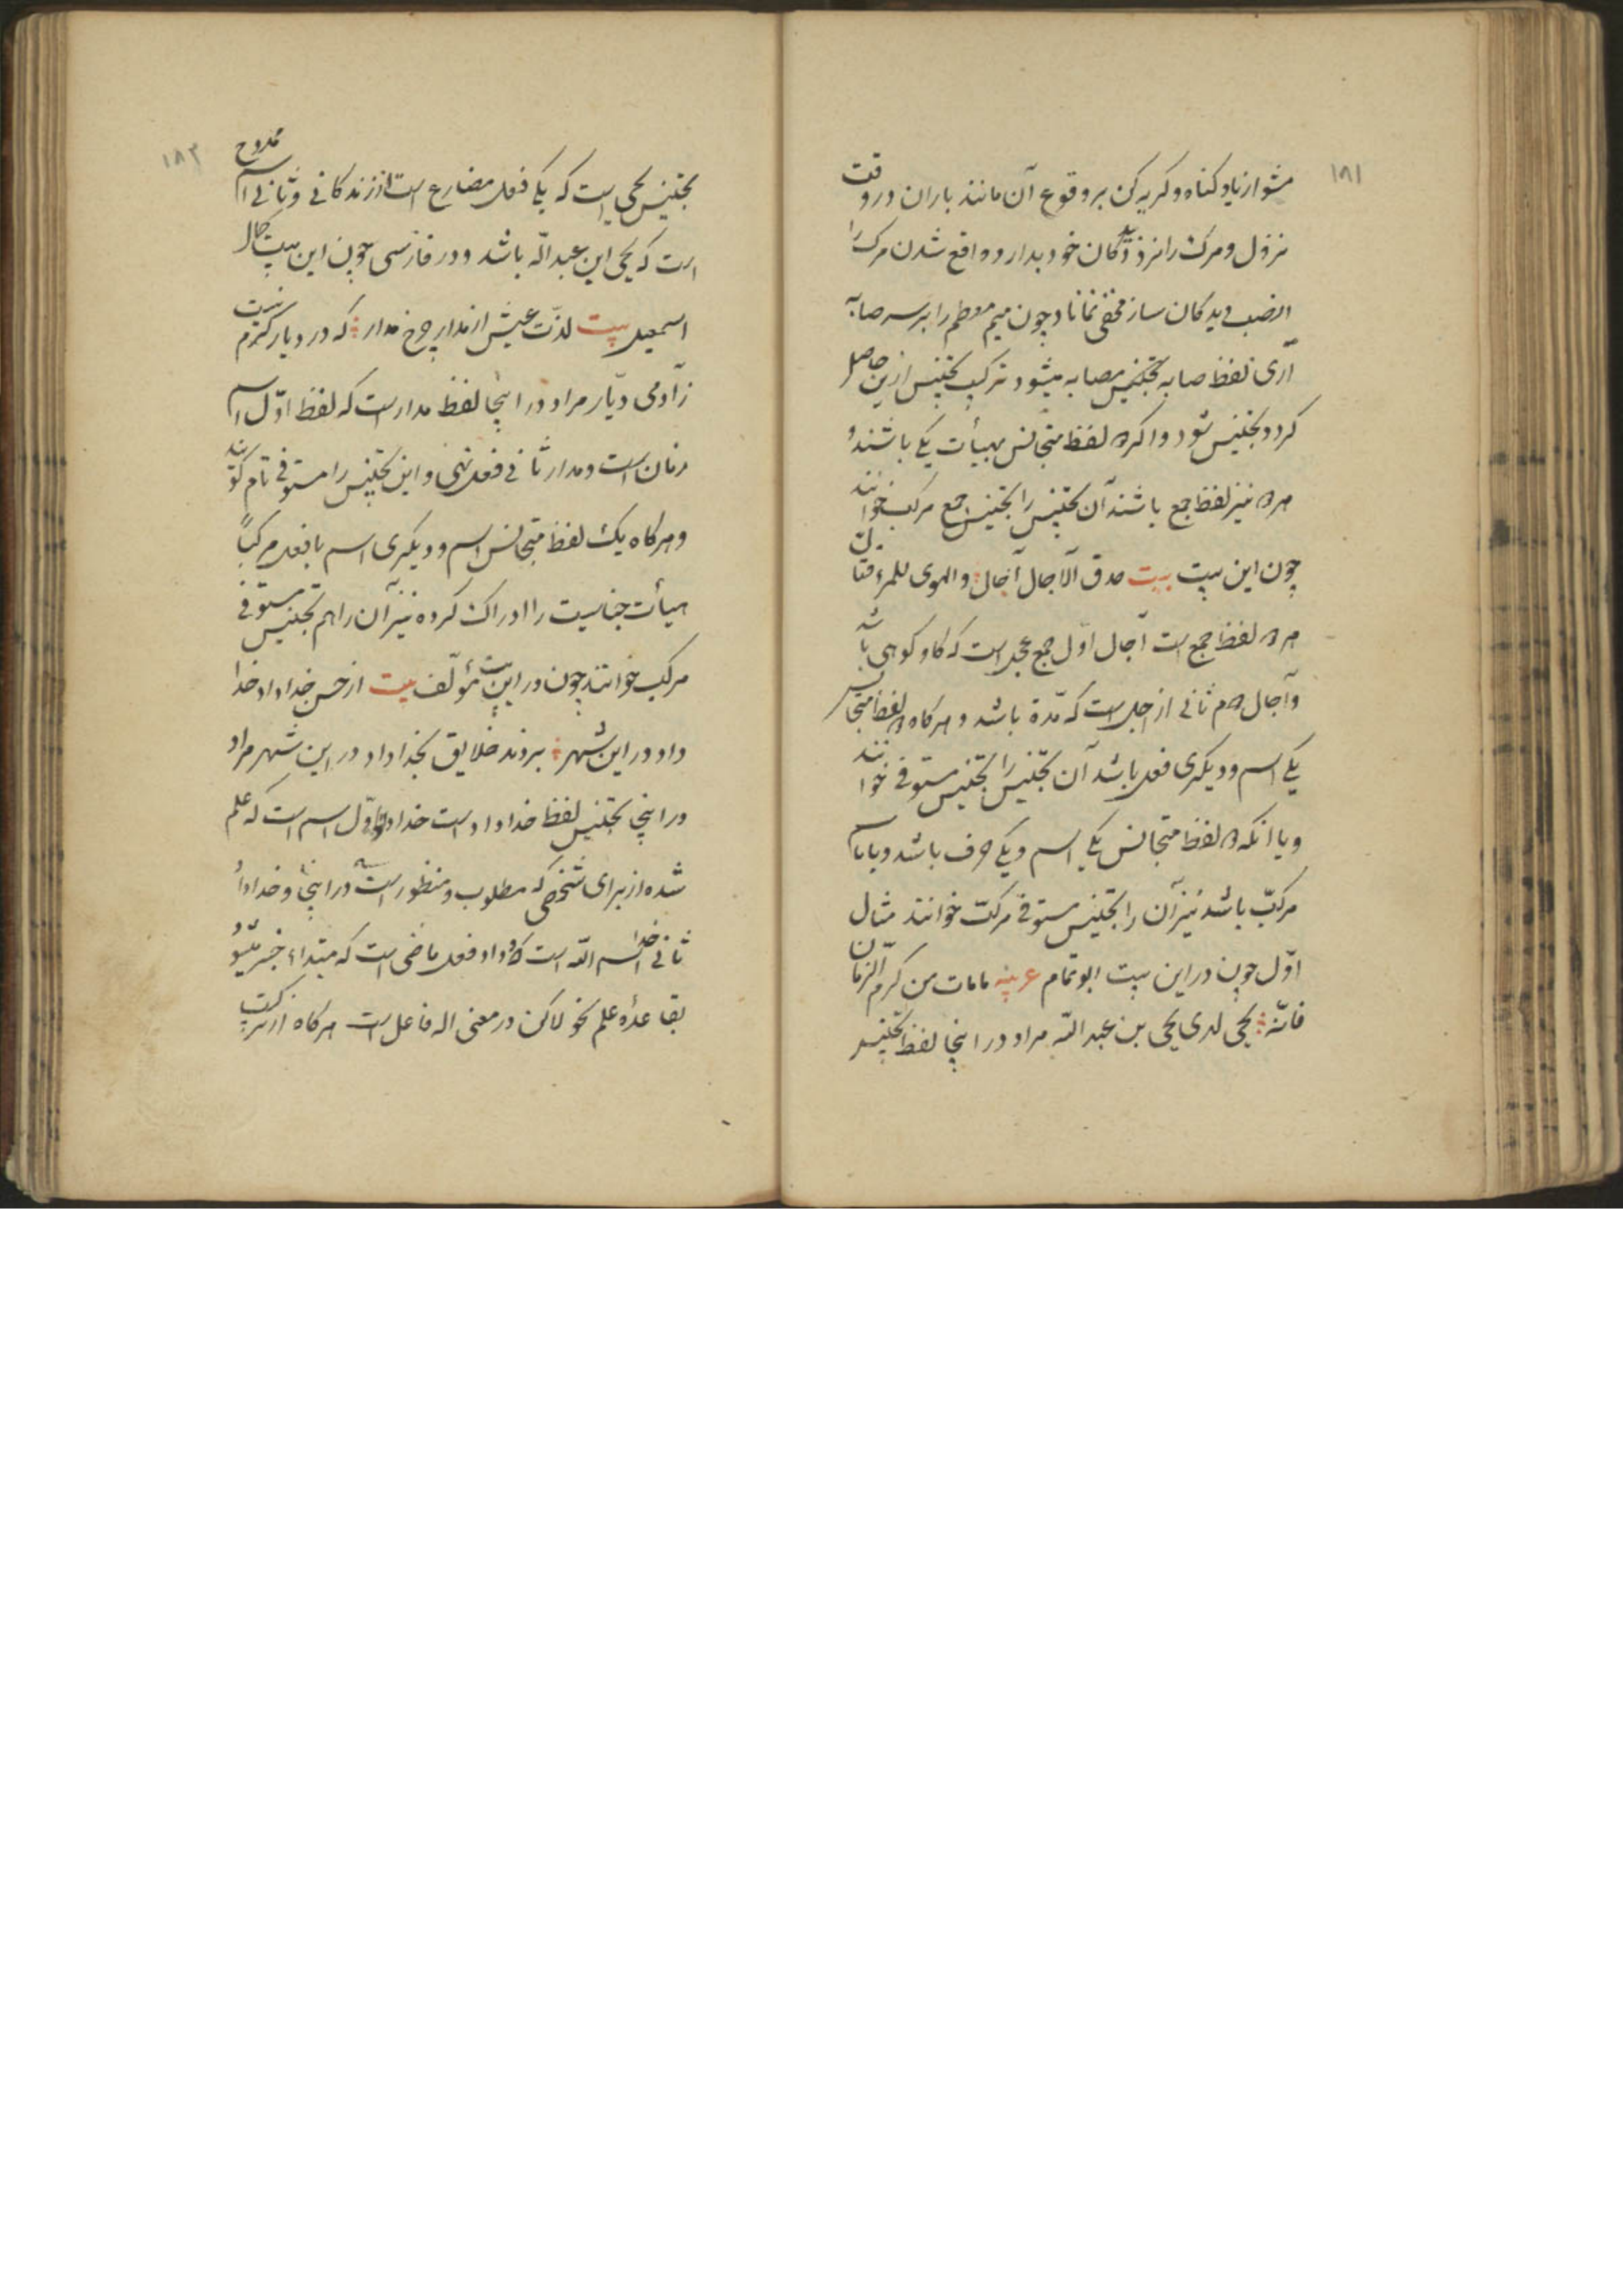 ۱۸۱
مشو از یاد کناه و کریه کن بر وقوع آن مانند باران در وقت
نزول و مرک را نزد دیدکان خود بدار و واقع شدن مرک را
نصب دیدکان ساز مخفی نماناد چون میم مطعم را بر سر صابه
آری لفظ صابه بتجنیس مصابه میشود ترکیب تجنیس ازین حاصل
کردد تجنیس شود و اکر ۲ لفظ متجانس بهیأت یکی باشند و
هر ۲ نیز لفظ جمع باشند آن تجنیس را تجنیس جمع مرکب خوانند
چون این بیت بیت حدق الآجال آجال و الهوی للمرء قتال
هر ۲ لفظ جمع است آجال اوّل جمع عجل است که کاو کوهی باشد
و آجال ۲م ثانی از اجل است که مدّة باشد و هر کاه ۲ لفظ متجانس
یکی اسم و دیکری فعل باشد آن تجنیس را تجنیس مستوفی خوانند
و یا انکه ۲ لفظ متجانس یکی اسم و یکی حرف باشد و یا با هم
مرکبّ باشد نیز آن را تجنیس مستوفی مرکبّ خوانند مثال
اوّل چون در این بیت ابو تمام عربیه مامات من کرم الزمان
فانّه یحیی لدی یحیی بن عبد اللّه مراد در اینجا لفظ تجنیس
۱۸۲
تجنیس یحیی است که یکی فعل مضارع است از زندکانی و ثانی اسم ممدوح
است که یحیی ابن عبد اللّه باشد و در فارسی چون این بیت کمال
اسمعیل بیت لذّت عیش از مدار چرخ مدار که در دیار کرم نیست
زآدمی دیّار مراد در اینجا لفظ مدار است که لفظ اوّل اسم
زمان است و مدار ثانی فعل نهی و این تجنیس را مستوفی تام کویند
و هر کاه یک لفظ متجانس اسم و دیکری اسم با فعل مرکباً
هیأت جناسیت را ادراک کرده نیز آن را هم تجنیس مستوفی
مرکب خوانند چون در این بیت مؤلّف بیت از حسن خداداد خدا
داد در این شهر بردند خلایق بخداداد در این شهر مراد
در اینجا تجنیس لفظ خداداد است خداداد اوّل اسم است که علم
شده از برای شخصی که مطلوب و منظور است در اینجا و خداداد
ثانی خدا اسم اللّه است و داد فعل ماضی است که مبتداء خبر میشود
بقاعدۀ علم نحو لاکن در معنی اله فاعل است هر کاه از ترکیب